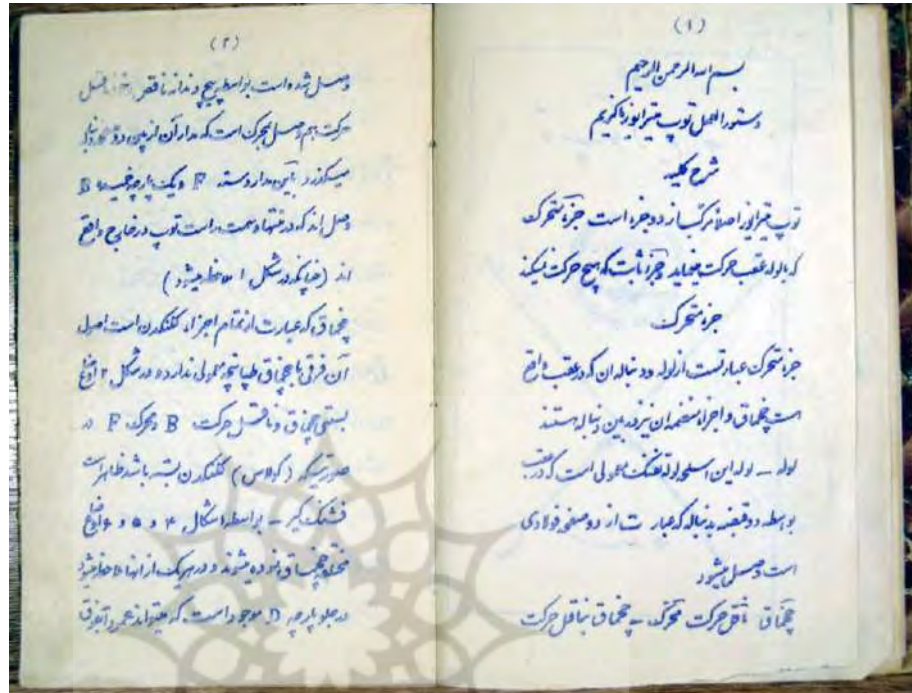 (۱)
بسم الله الرحمن الرحیم
دستورالعمل توپ میترایوز ماکزیم
شرح کلیه
توپ میترایوز اصلا مرکب از دو جزء است جزء متحرک
که با لوله عقب حرکت مینماید و جزء ثابت که هیچ حرکت نمیکند
جزء متحرک
جزء متحرک عبارتست از لوله و دو دنباله آن که در عقب واقع
است چخماق و اجزاء منضمه آن نیز در بین دنباله هستند
لوله – لوله این اسلحه لوله تفنگ معمولی است که در عقب
بواسطه دو قبضه بدنباله که عبارت از دو صفحه فولادی
است وصل میشود
چخماق ناقل حرکت محرک – چخماق بناقل حرکت
(۲)
وصل شده است بواسطه پیچ و دندانه ناقص
حرکت هم وصل بمحرک است که مدار آن از بین دو دنباله
میگذرد باین مدار دسته F و یک پارچه B
وصل اند که در منتها و سمت راست توپ در خارج واقع
اند (چنانکه در شکل ۱ ملاحظه میشود)
چخماق که عبارت از تمام اجزاء کلنگدن است اصول
آن فرقی با چخماق طپانچه معمولی ندارد و در شکل ۲
بستگی چخماق و ناقل حرکت B و محرک F در
صورتیکه (کولاس) کلنگدن بسته باشد ظاهر است
فشنگ گیر – بواسطه اشکال ۴ و ۵ و ۶
چخماق نموده میشوند و در هریک از آنها ملاحظه میشود
در جلو پارچه D موجود است که میتواند